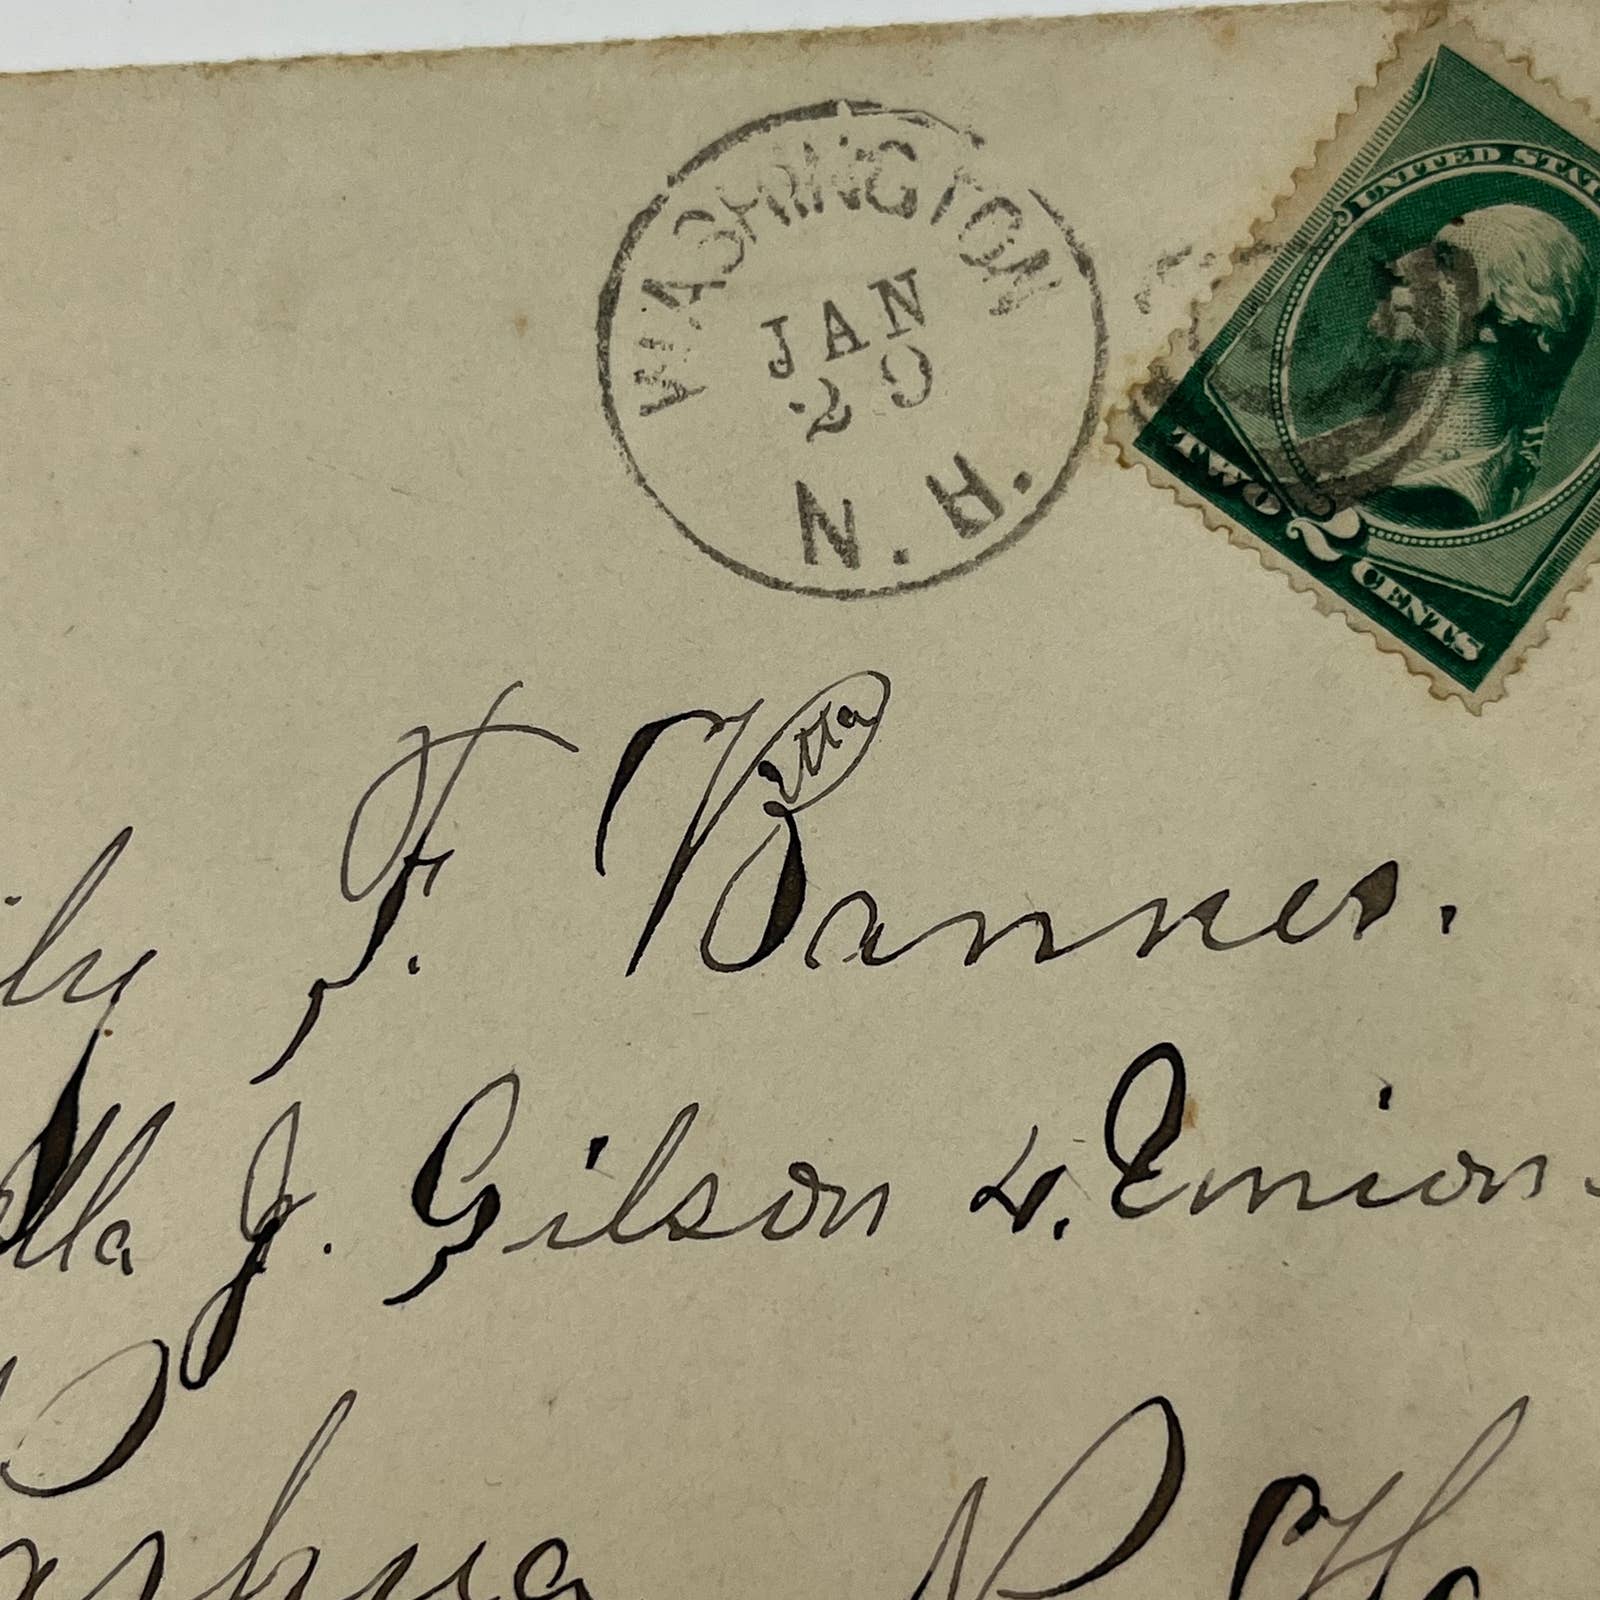 WASHINGTON
JAN
20
N. H.
UNITED STA
TWO 2 CENTS
ily F. Barnes.
etta
lla J. Gilson 4. Union
ashua N. H.